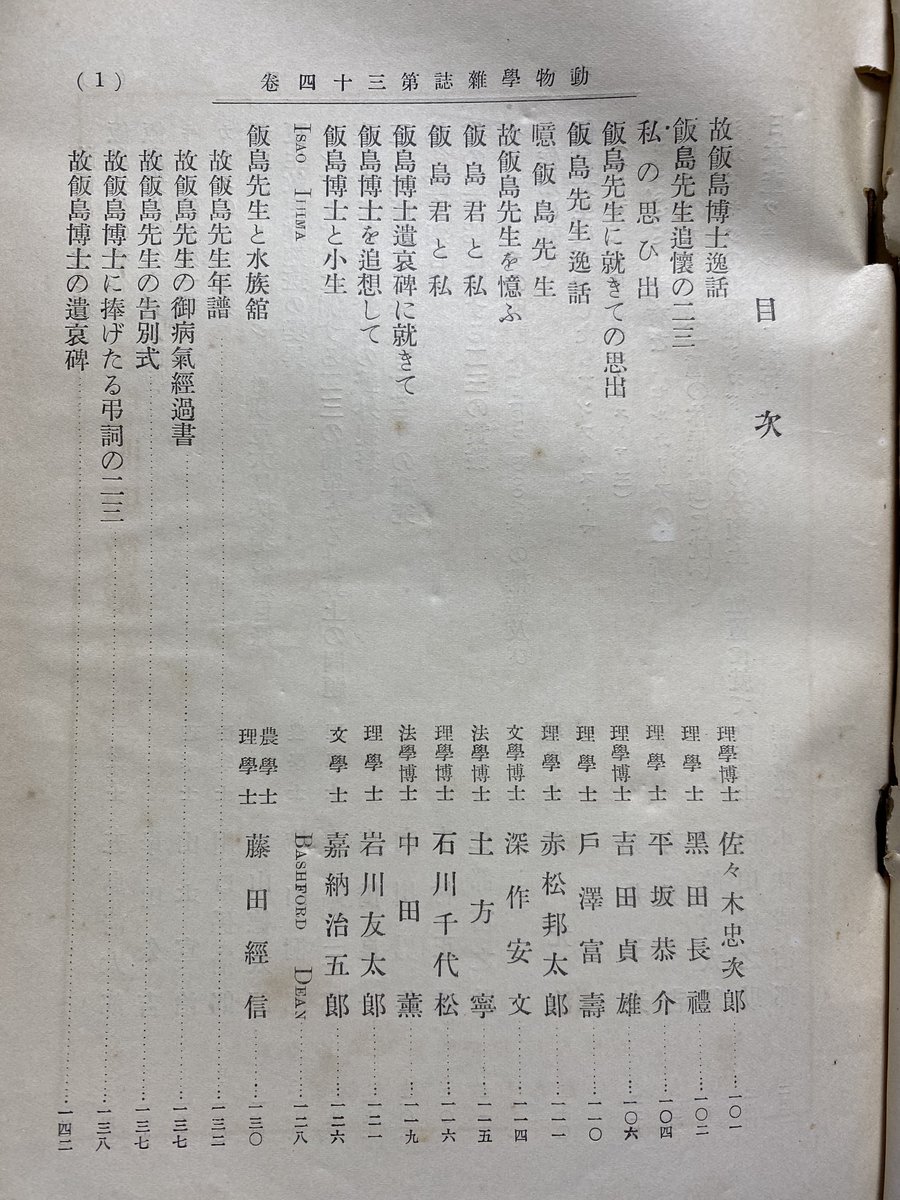 動物學雜誌第三十四卷
(1)
目次
故飯島博士逸話 理學博士 佐々木忠次郎……一〇一
飯島先生追懷の二三 理學士 黑田長禮……一〇二
私の思ひ出 理學士 平坂恭介……一〇四
飯島先生に就きての思出 理學博士 吉田貞雄……一〇六
飯島先生逸話 理學士 戶澤富壽……一一〇
噫飯島先生 理學士 赤松邦太郎……一一一
故飯島先生を憶ふ 文學博士 深作安文……一一四
飯島君と私 法學博士 土方寧……一一五
飯島君と私 理學博士 石川千代松……一一六
飯島博士遺哀碑に就きて 法學博士 中田薰……一一九
飯島博士を追想して 理學士 岩川友太郎……一二一
飯島博士と小生 文學士 嘉納治五郎……一二六
ISAO IJIMA BASHFORD DEAN……一二八
飯島先生と水族館 農學士 理學士 藤田經信……一三〇
故飯島先生年譜……一三二
故飯島先生の御病氣經過書……一三七
故飯島先生の告別式……一三七
故飯島博士に捧げたる弔詞の二三……一三八
故飯島博士の遺哀碑……一四二